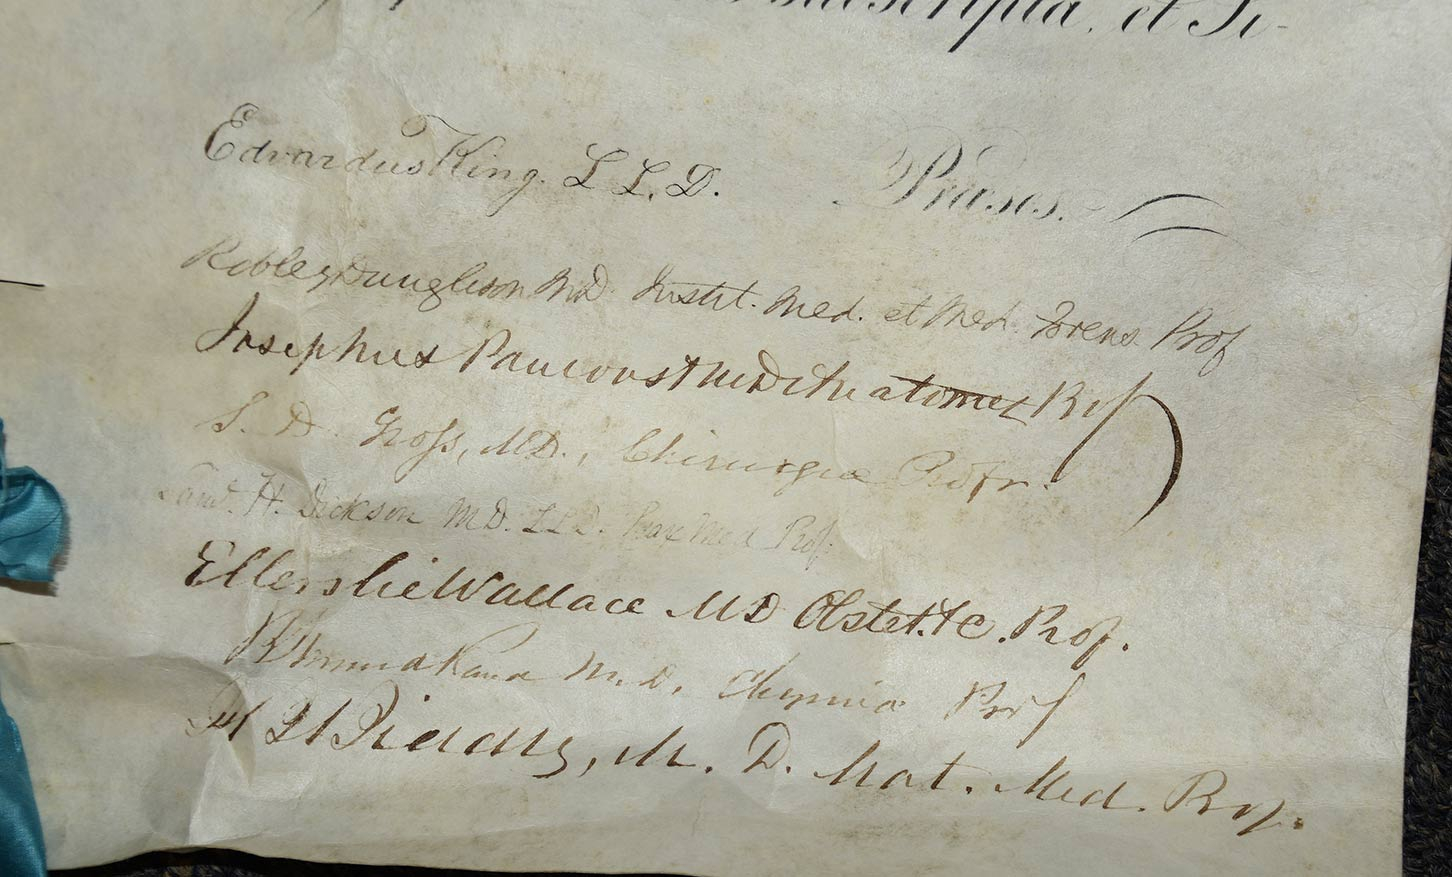 subscripta, et Si-
Edvardus King. L L. D. Præses.
Robley Dunglison M.D. Instit. Med. et Med. Forens. Prof
Josephus Pancoast M D Anatomiæ Prof
S. D. Gross, M.D., Chirurgiæ Profr.
Saml. H. Dickson M.D. L L D. Prax Med Prof.
Ellerslie Wallace M D Obstet. &c. Prof.
B Howard Rand M. D. Chymiæ Prof
Biddle, M. D. Mat. Med. Prof.